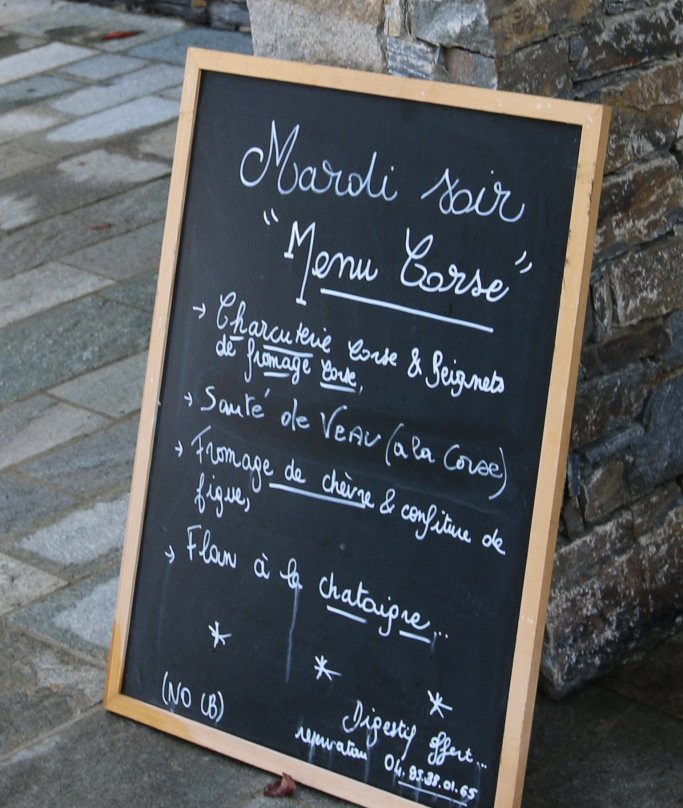 Mardi soir
"Menu Corse"
→ Charcuterie Corse & Beignets
de fromage Corse,
→ Sauté de VEAU (a la Corse)
→ Fromage de chèvre & confiture de
figue,
→ Flan à la chataigne...
(NO CB)
Digestif offert...
reservation 04.95.38.01.65